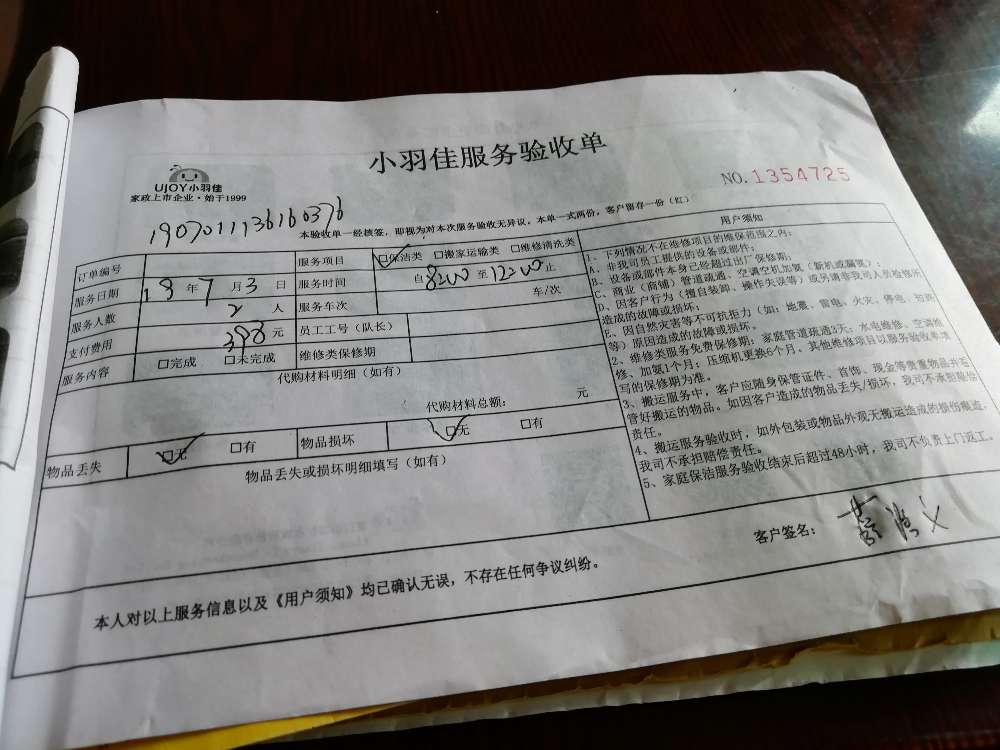 小羽佳服务验收单
UJOY小羽佳
家政上市企业·始于1999
NO.1354725
1907011136160376
本验收单一经核签，即视为对本次服务验收无异议。本单一式两份，客户留存一份（红）
订单编号 服务项目 □保洁类 □搬家运输类 □维修清洗类
服务日期 19年7月3日 服务时间 自8:00至12:00止
服务人数 2人 服务车次 车/次
支付费用 398元 员工工号（队长）
服务内容 □完成 □未完成 维修类保修期
代购材料明细（如有）
代购材料总额： 元
物品丢失 □无 □有 物品损坏 □无 □有
物品丢失或损坏明细填写（如有）
用户须知
1、下列情况不在维修项目的维保范围之内：
A、非我司员工提供的设备或部件；
B、设备或部件本身已经超过出厂保修期；
C、商业（商铺）管道疏通、空调空机加氨（新机或漏氨）；
D、因客户行为（擅自装卸、操作失误等）或另请非我司人员检修所
造成的故障或损坏；
E、因自然灾害等不可抗拒力（如：地震、雷电、火灾、停电、短路
等）原因造成的故障或损坏。
2、维修类服务免费保修期：家庭管道疏通3天；水电维修、空调维
修、加氨1个月；压缩机更换6个月。其他维修项目以服务验收单填
写的保修期为准。
3、搬运服务中，客户应随身保管证件、首饰、现金等贵重物品并看
管好搬运的物品。如因客户造成的物品丢失/损坏，我司不承担赔偿
责任。
4、搬运服务验收时，如外包装或物品外观无搬运造成的损伤痕迹，
我司不承担赔偿责任。
5、家庭保洁服务验收结束后超过48小时，我司不负责上门返工。
客户签名：
本人对以上服务信息以及《用户须知》均已确认无误，不存在任何争议纠纷。